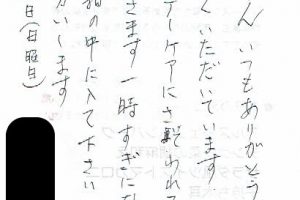 ん いつもありがとう
くいただいています
デーケアにさそわれて
さます 一時すぎにな
箱の中に入て下さい
がいします
日(日曜日)